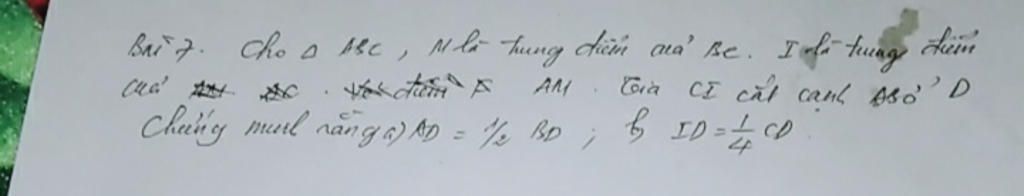 Bài 7. Cho Δ ABC, M là trung điểm của BC. I là trung điểm
của AM. Tia CI cắt cạnh AB ở D
Chứng minh rằng a) AD = 1/2 BD ; b) ID = 1/4 CD